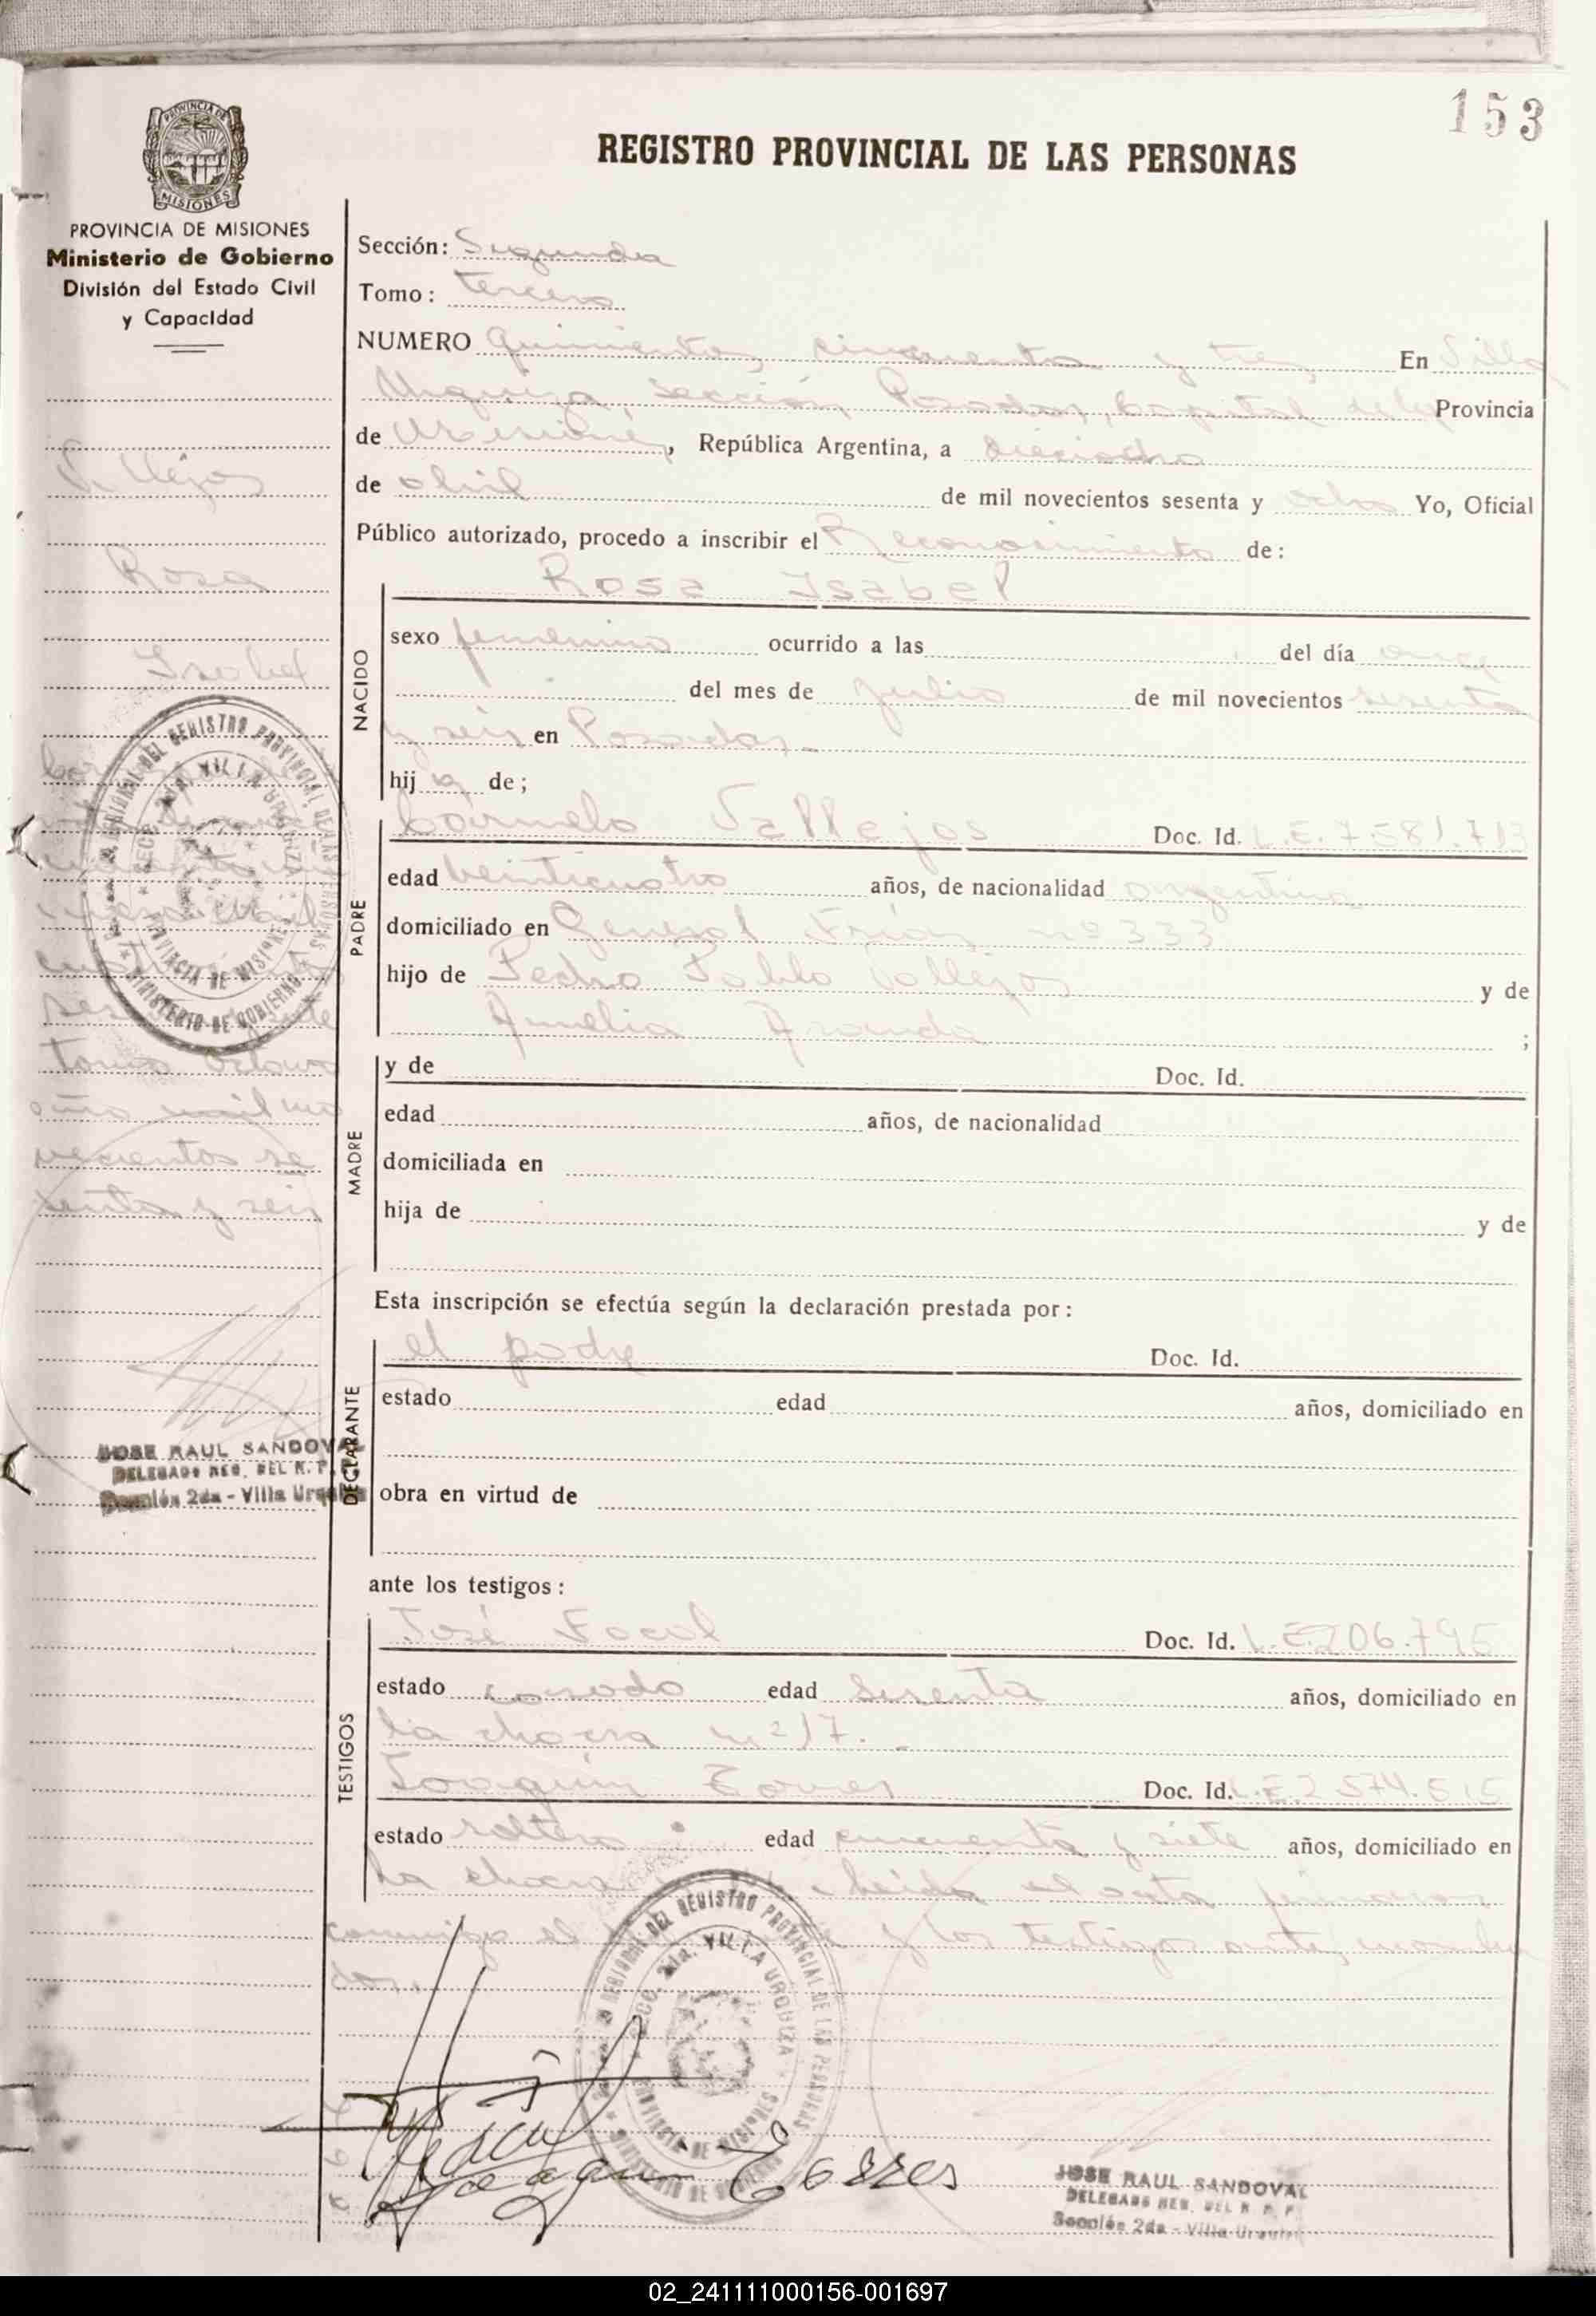 153
REGISTRO PROVINCIAL DE LAS PERSONAS
PROVINCIA DE MISIONES
MISIONES
PROVINCIA DE MISIONES
Ministerio de Gobierno
División del Estado Civil
y Capacidad
Vallejos
Rosa
Isabel
tomo octavo
año mil no
vecientos se
senta y seis
JOSE RAUL SANDOVAL
DELEGADO REG. DEL R. P.
Sección 2da - Villa Urquiza
Sección: Segunda
Tomo: tercero
NUMERO Quinientos cincuenta y tres En Villa
Urquiza, sección Posadas, Capital de la Provincia
de Misiones, República Argentina, a dieciocho
de abril de mil novecientos sesenta y ocho Yo, Oficial
Público autorizado, procedo a inscribir el Reconocimiento de:
Rosa Isabel
NACIDO
sexo femenino ocurrido a las del día once
del mes de julio de mil novecientos sesenta
y seis en Posadas.-
hij a de;
PADRE
Carmelo Vallejos Doc. Id. L.E. 7.581.713
edad veinticuatro años, de nacionalidad argentina
domiciliado en General Frías nº 333
hijo de Pedro Pablo Vallejos y de
Amelia Aranda ;
MADRE
y de Doc. Id.
edad años, de nacionalidad
domiciliada en
hija de y de
Esta inscripción se efectúa según la declaración prestada por:
DECLARANTE
el padre Doc. Id.
estado edad años, domiciliado en
obra en virtud de
ante los testigos:
TESTIGOS
José Doc. Id. L.E. 206.795
estado casado edad sesenta años, domiciliado en
la chacra nº 17.-
Joaquín Torres Doc. Id. L.E. 2.574.515
estado soltero edad cincuenta y siete años, domiciliado en
la chacra leída el acta firmaron
conmigo el y los testigos antes nombra
dos.
REGIONAL DEL REGISTRO PROVINCIAL DE LAS PERSONAS
SECC. 2da. VILLA URQUIZA
PROVINCIA DE MISIONES
MINISTERIO DE GOBIERNO
Joaquin Torres
JOSE RAUL SANDOVAL
DELEGADO REG. DEL R. P. P.
Sección 2da - Villa Urquiza
02_241111000156-001697